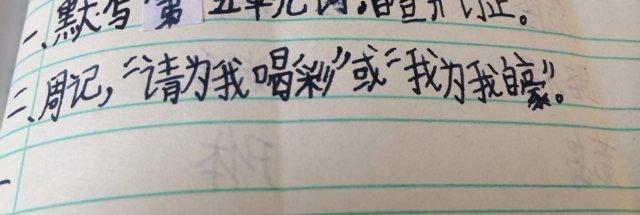 一、默写第五单元词。自查并订正。
二、周记,“请为我喝彩”或“我为我自豪”。